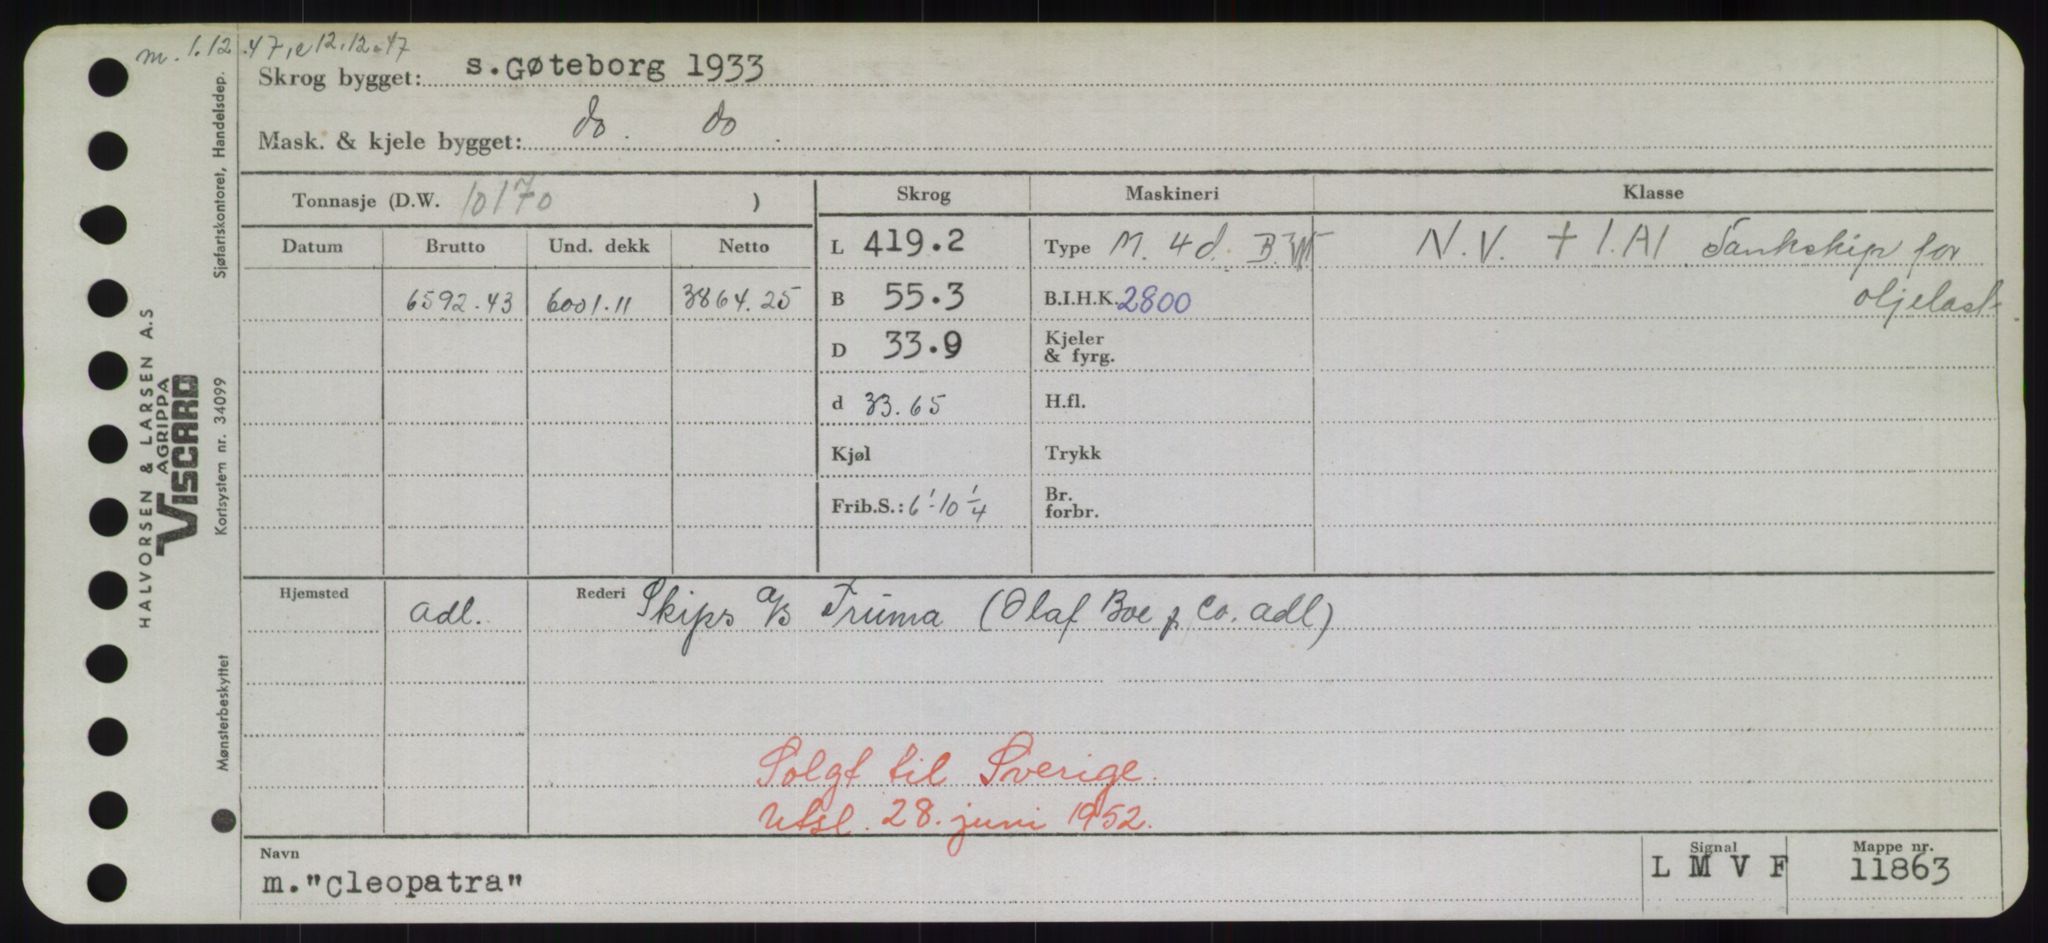 m. 1.12.47, e 12.12.47
Skrog bygget: s.Gøteborg 1933
Mask. & kjele bygget: do. do.
Tonnasje (D.W. 10170 )
Skrog Maskineri Klasse
Datum Brutto Und. dekk Netto
6592.43 6001.11 3864.25
L 419.2
B 55.3
D 33.9
d 33.65
Kjøl
Frib.S.: 6'-10 1/4
Type M. 4d.
B.I.H.K. 2800
Kjeler
& fyrg.
H.fl.
Trykk
Br.
forbr.
N.V. + 1.A1 Tankskip for
oljelast.
Hjemsted adl. Rederi Skips a/s Truma (Olaf Boe & Co. adl)
Solgt til Sverige.
Utsl. 28. juni 1952.
Navn
m."Cleopatra"
Signal
L M V F
Mappe nr.
11863
HALVORSEN & LARSEN A.S
AGRIPPA
VISCARD
Sjøfartskontoret, Handelsdep.
Kortsystem nr. 34099
Mønsterbeskyttet